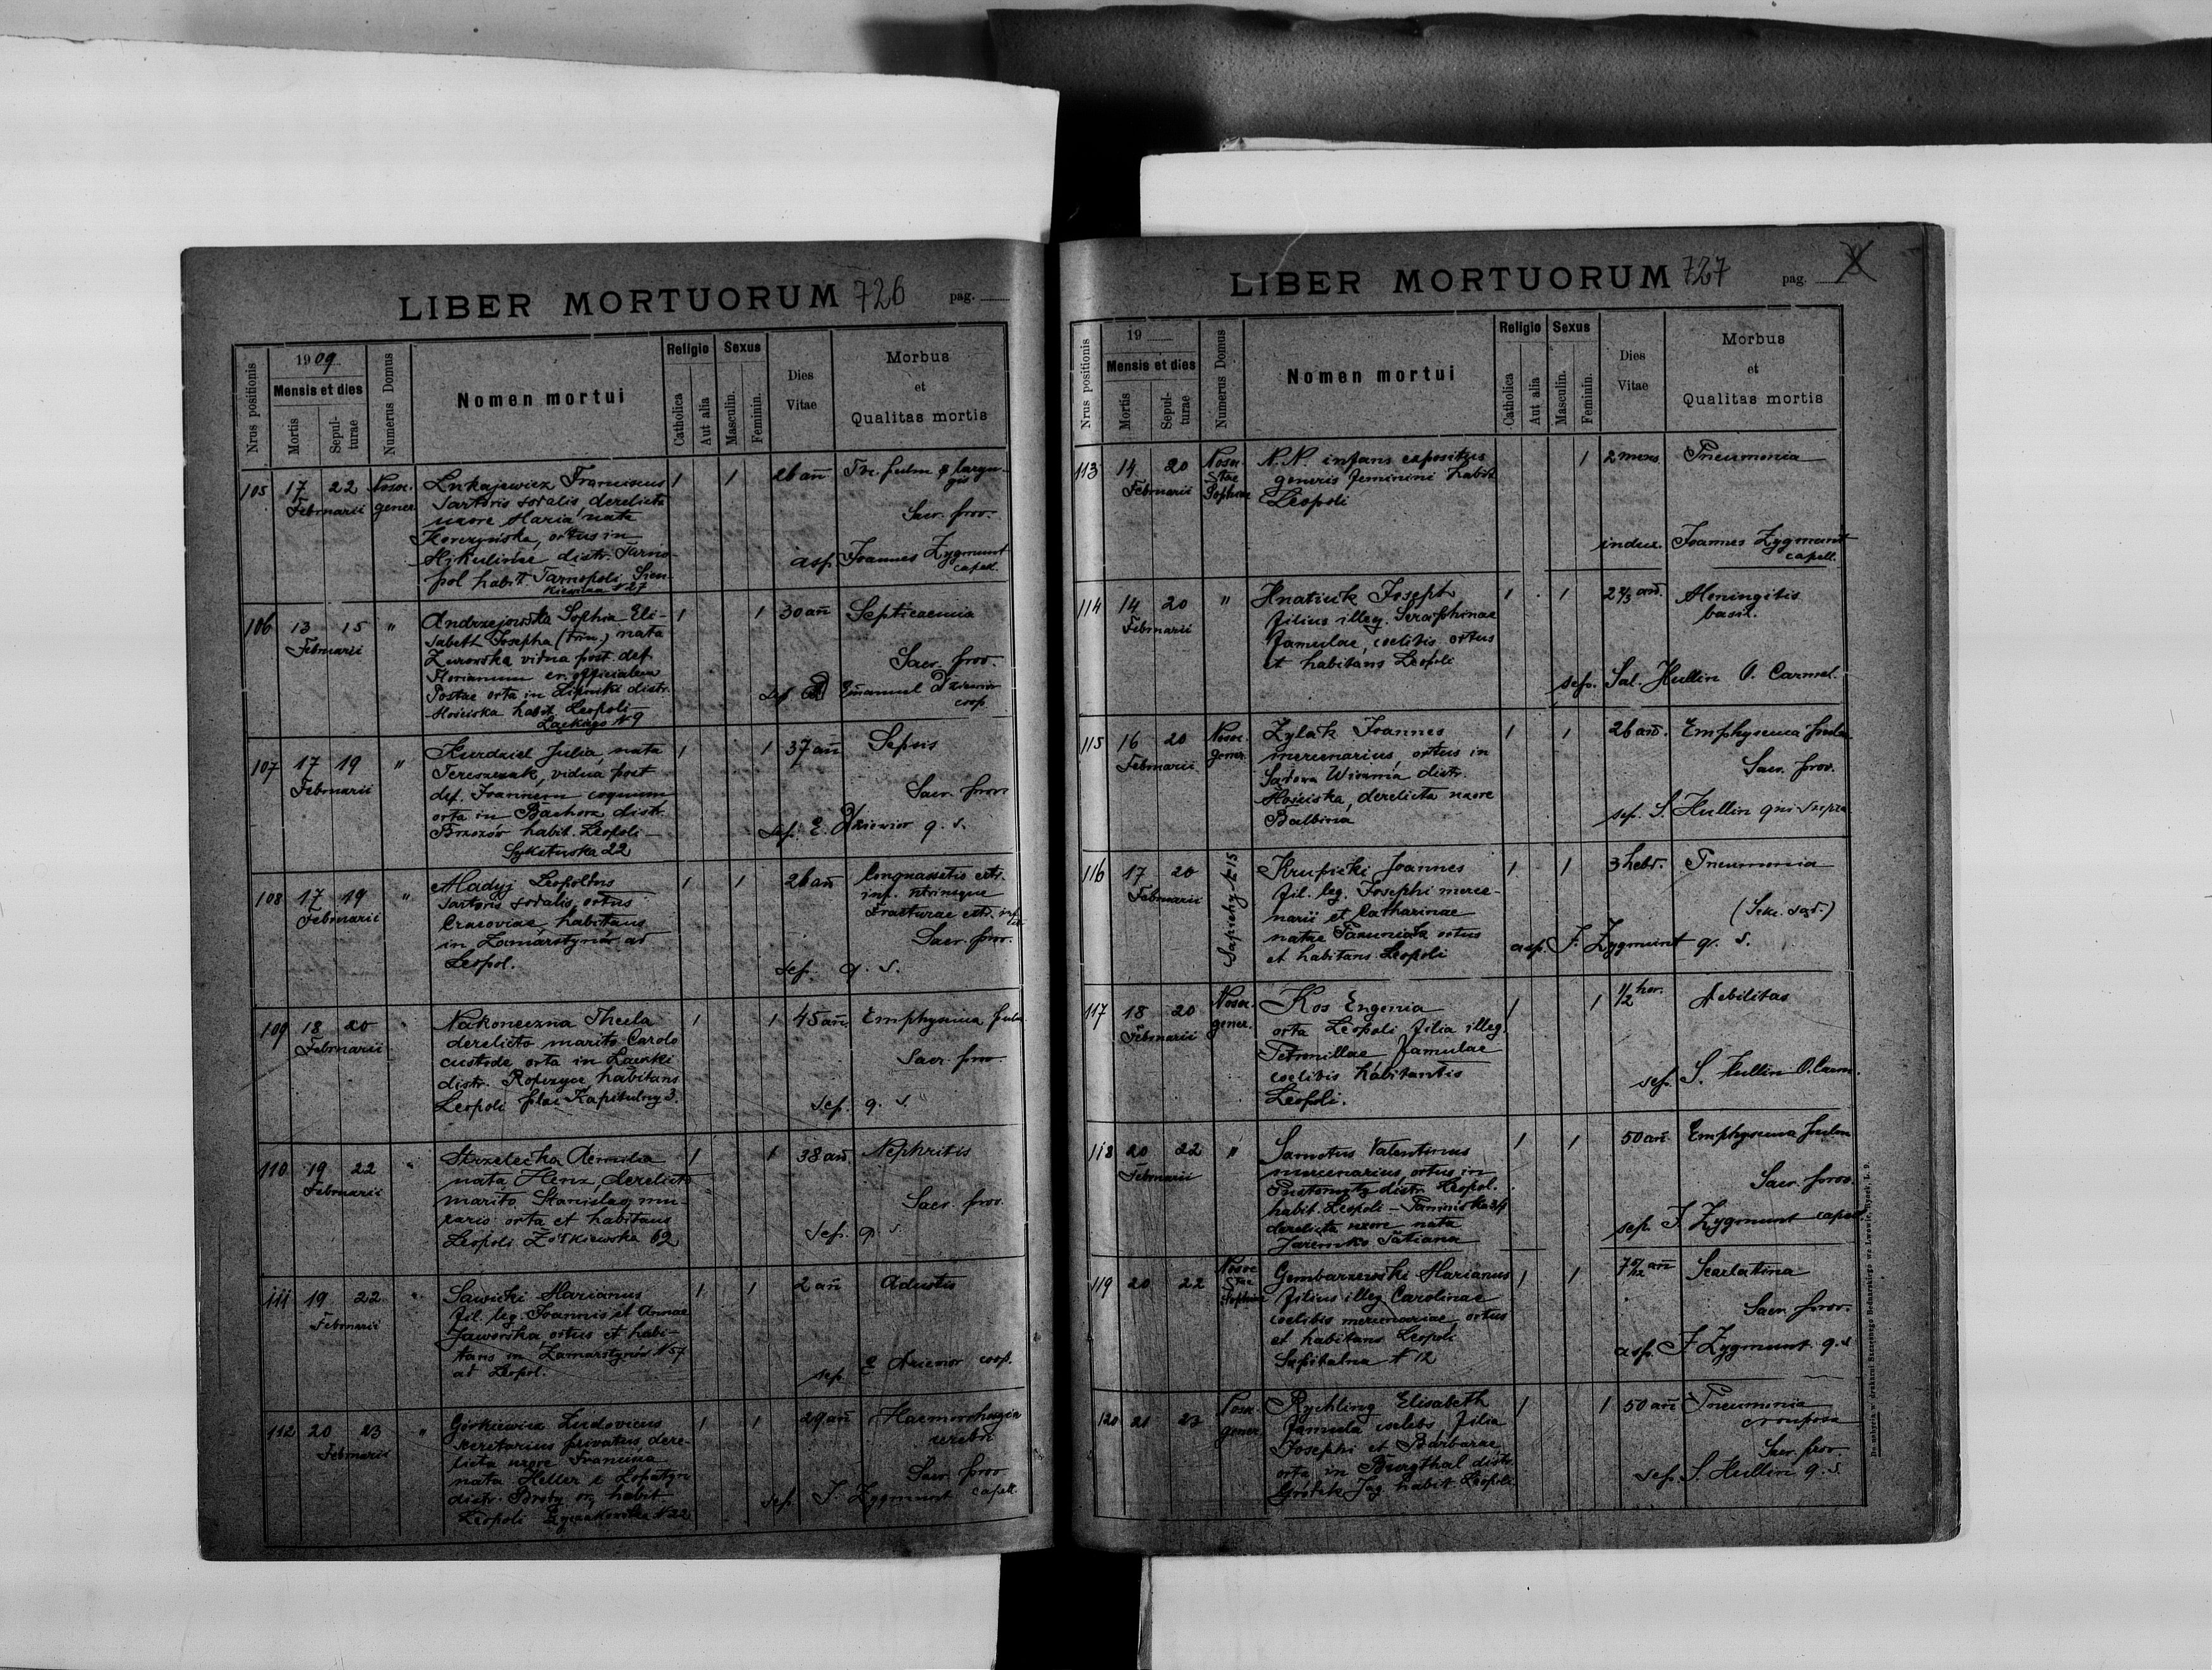 LIBER MORTUORUM 726 pag.
Nrus positionis
1909
Mensis et dies
Mortis
Sepulturae
Numerus Domus
Nomen mortui
Religio
Catholica
Aut alia
Sexus
Masculin.
Feminin.
Dies Vitae
Morbus
et
Qualitas mortis
105 17 22 Februarii Nosoc. gener.
Lukajewicz Franciscus
sartoris sodalis, derelicta
uxore Maria nata
Korczyńska, ortus in
distr. Tarno-
pol habit. Tarnopoli
N 27
1 1 26 ann
Tbc. pulm & laryn-
gis
Sacr. prov.
asp. Joannes Zygmunt
capell.
106 13 15 Februarii "
Andrzejowska Sophia Eli-
sabeth Josepha (trin.) nata
Żurowska vidua post def.
Florianum officialem
Postae orta in Lipniki distr.
Mościska habit. Leopoli
Łąckiego N 9
1 1 30 ann
Septicaemia
Sacr. prov.
sep. Emanuel Dziewior
coop.
107 17 19 Februarii "
Kurdziel Julia, nata
Tereszczak, vidua post
def. Joannem coquum
orta in Bachorz distr.
Brzozów habit. Leopoli –
Sykstuska 22
1 1 37 ann
Sepsis
Sacr. prov.
sep. E. Dziewior q. s.
108 17 19 Februarii "
Madyj Leopoldus
sartoris sodalis, ortus
Cracoviae habitans
in Zamarstynów ad
Leopol.
1 1 26 ann
Conquassatio extr.
inf. utriusque
Fracturae extr. inf.
Sacr. prov.
sep. q. s.
109 18 20 Februarii "
Nakoneczna Thecla
derelicto marito Carolo
custode, orta in Łączki
distr. Ropczyce, habitans
Leopoli plac Kapitulny 3.
1 1 45 ann.
Emphysema pulm
Sacr. prov.
sep. q. s.
110 19 22 Februarii "
Strzelecka Aemilia
nata Henz, derelicto
marito Stanislao mu-
rario orta et habitans
Leopoli Żółkiewska 62
1 1 38 ann.
Nephritis
Sacr. prov.
sep. q. s.
111 19 22 Februarii "
Sawicki Marianus
fil. leg. Joannis et Annae
Jaworska, ortus et habi-
tans in Zamarstynów N 57
ad Leopol.
1 1 2 ann
Adustio
sep. E Dziewior coop.
112 20 23 Februarii "
Górkiewicz Ludovicus
secretarius privatus, dere-
licta uxore Francisca
nata Heller e Łopatyn
distr. Brody or, habit
Leopoli Łyczakowska N 22
1 1 29 ann
Haemorrhagia
cerebri
Sacr. prov
sep. J. Zygmunt capell.
LIBER MORTUORUM 727 pag.
Nrus positionis
19
Mensis et dies
Mortis
Sepulturae
Numerus Domus
Nomen mortui
Religio
Catholica
Aut alia
Sexus
Masculin.
Feminin.
Dies Vitae
Morbus
et
Qualitas mortis
113 14 20 Februarii Nosoc. Stae Sophiae
N. N. infans expositus
generis feminini habit.
Leopoli
1 2 mens.
Pneumonia
indux. Joannes Zygmunt
capell.
114 14 20 Februarii "
Hnatiuk Joseph
filius illeg. Seraphinae
famulae, coelibis, ortus
et habitans Leopoli
1 1 2 ann.
Meningitis
basil.
sep. Sal. Hullin O. Carmel.
115 16 20 Februarii Nosoc. gener.
Żylak Joannes
mercenarius, ortus in
Sadowa Wisznia distr.
Mościska, derelicta uxore
Balbina
1 1 26 ann.
Emphysema pulm.
Sacr. prov.
sep. S. Hullin qui supra
116 17 20 Februarii Sapiehy N 15
Krupicki Joannes
fil. leg. Josephi merce-
narii et Catharinae
natae ortus
et habitans Leopoli
1 1 3 hebd.
Pneumonia
asp. J. Zygmunt q. s.
117 18 20 Februarii Nosoc. gener.
Kos Eugenia
orta Leopoli filia illeg.
Petronillae famulae
coelibis habitantis
Leopoli.
1 1 1/2 hor.
Debilitas
sep. S. Hullin O. Carm.
118 20 22 Februarii "
Sarnotus Valentinus
mercenarius, ortus in
Pustomyty distr. Leopol.
habit. Leopoli – 34
derelicta uxore nata
Jaremko Tatiana
1 1 50 ann.
Emphysema pulm
Sacr. prov.
sep. J. Zygmunt capell.
119 20 22 Nosoc Stae Sophiae
Gembarzewski Marianus
filius illeg. Carolinae
coelibis mercenariae, ortus
et habitans Leopoli
Szpitalna N 12
1 1 ann
Scarlatina
Sacr. prov.
asp. J Zygmunt q. s
120 21 23 Nosoc. gener.
Rychling Elisabeth
famula coelebs filia
Josephi et Barbarae
orta in Burgthal distr.
Gródek Jag. habit. Leopoli
1 1 50 ann
Pneumonia
crouposa
Sacr. prov
sep. S. Hullin q. s.
Do nabycia w drukarni Szczęsnego Bednarskiego we Lwowie, Rynek, l. 9.